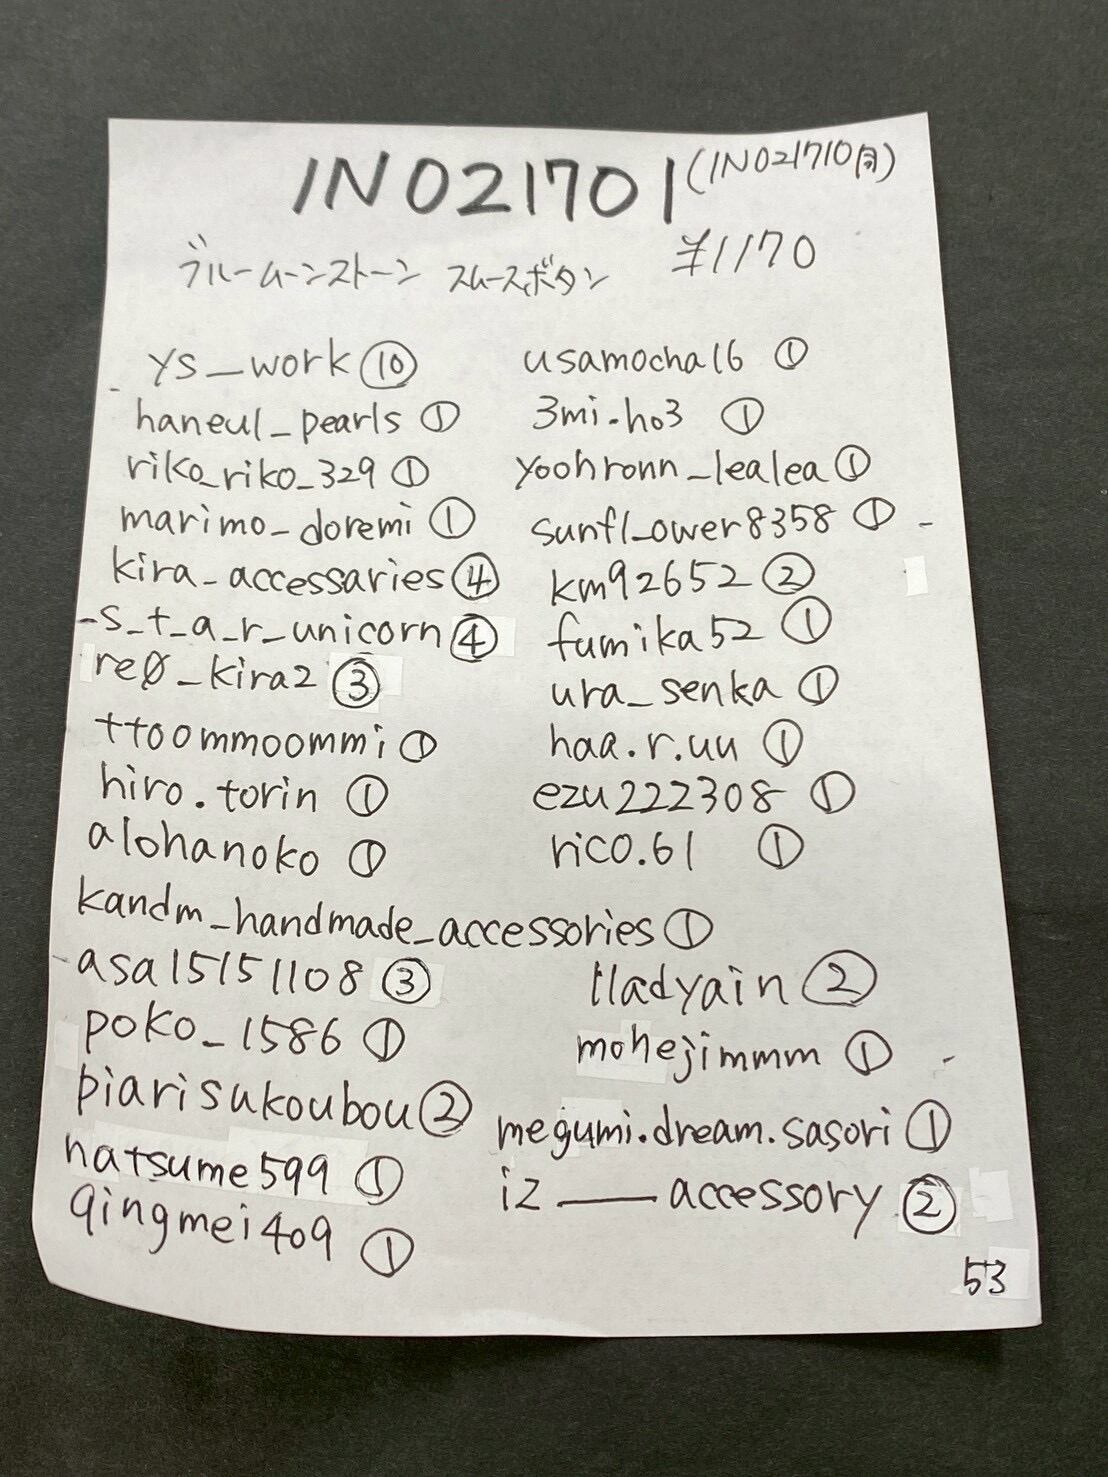 IN021701 (IN021710同)
ブルームーンストーン スムースボタン ¥1170
ys_work ⑩
haneul_pearls ①
riko_riko_329 ①
marimo_doremi ①
kira_accessaries ④
_s_t_a_r_unicorn ④
re0_kira2 ③
ttoommoommi ①
hiro.torin ①
alohanoko ①
usamocha16 ①
3mi.ho3 ①
yoohronn_lealea ①
sunfl_ower8358 ①
km92652 ②
fumika52 ①
ura_senka ①
haa.r.uu ①
ezu222308 ①
rico.61 ①
kandm_handmade_accessories ①
asa15151108 ③
poko_1586 ①
piarisukoubou ②
natsume599 ①
qingmei409 ①
tladyain ②
mohejimmm ①
megumi.dream.sasori ①
iz___accessory ②
53